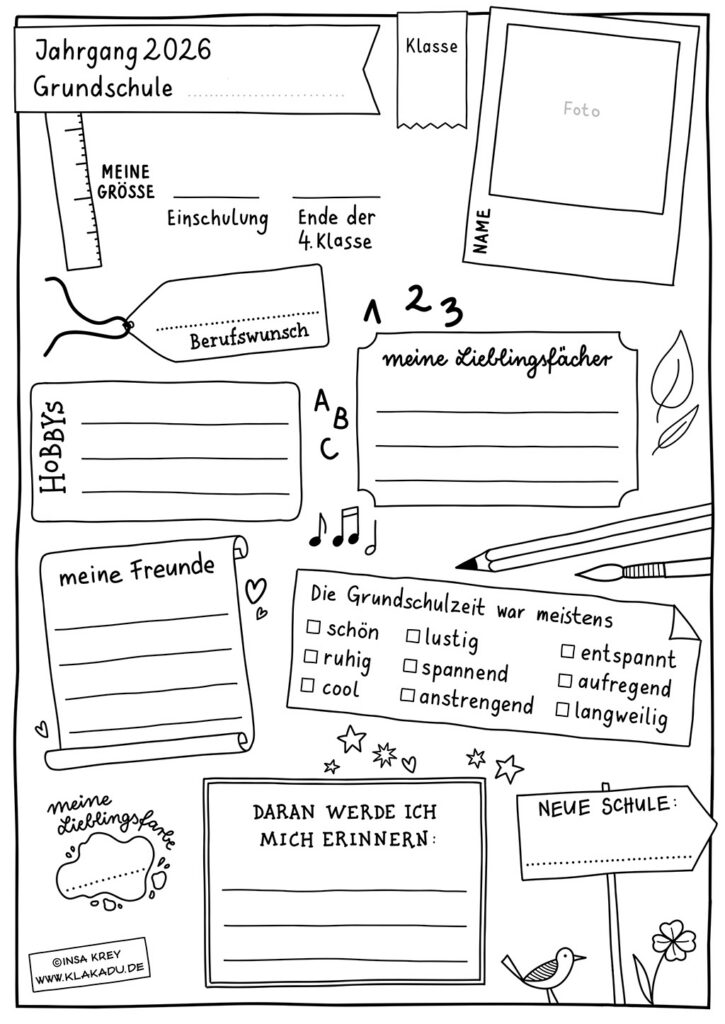 Jahrgang 2026
Grundschule
Klasse
Foto
NAME
MEINE
GRÖSSE
Einschulung
Ende der
4. Klasse
Berufswunsch
1 2 3
meine Lieblingsfächer
HOBBYS
A
B
C
meine Freunde
Die Grundschulzeit war meistens
schön
lustig
entspannt
ruhig
spannend
aufregend
cool
anstrengend
langweilig
meine
Lieblingsfarbe
DARAN WERDE ICH
MICH ERINNERN:
NEUE SCHULE:
©INSA KREY
WWW.KLAKADU.DE